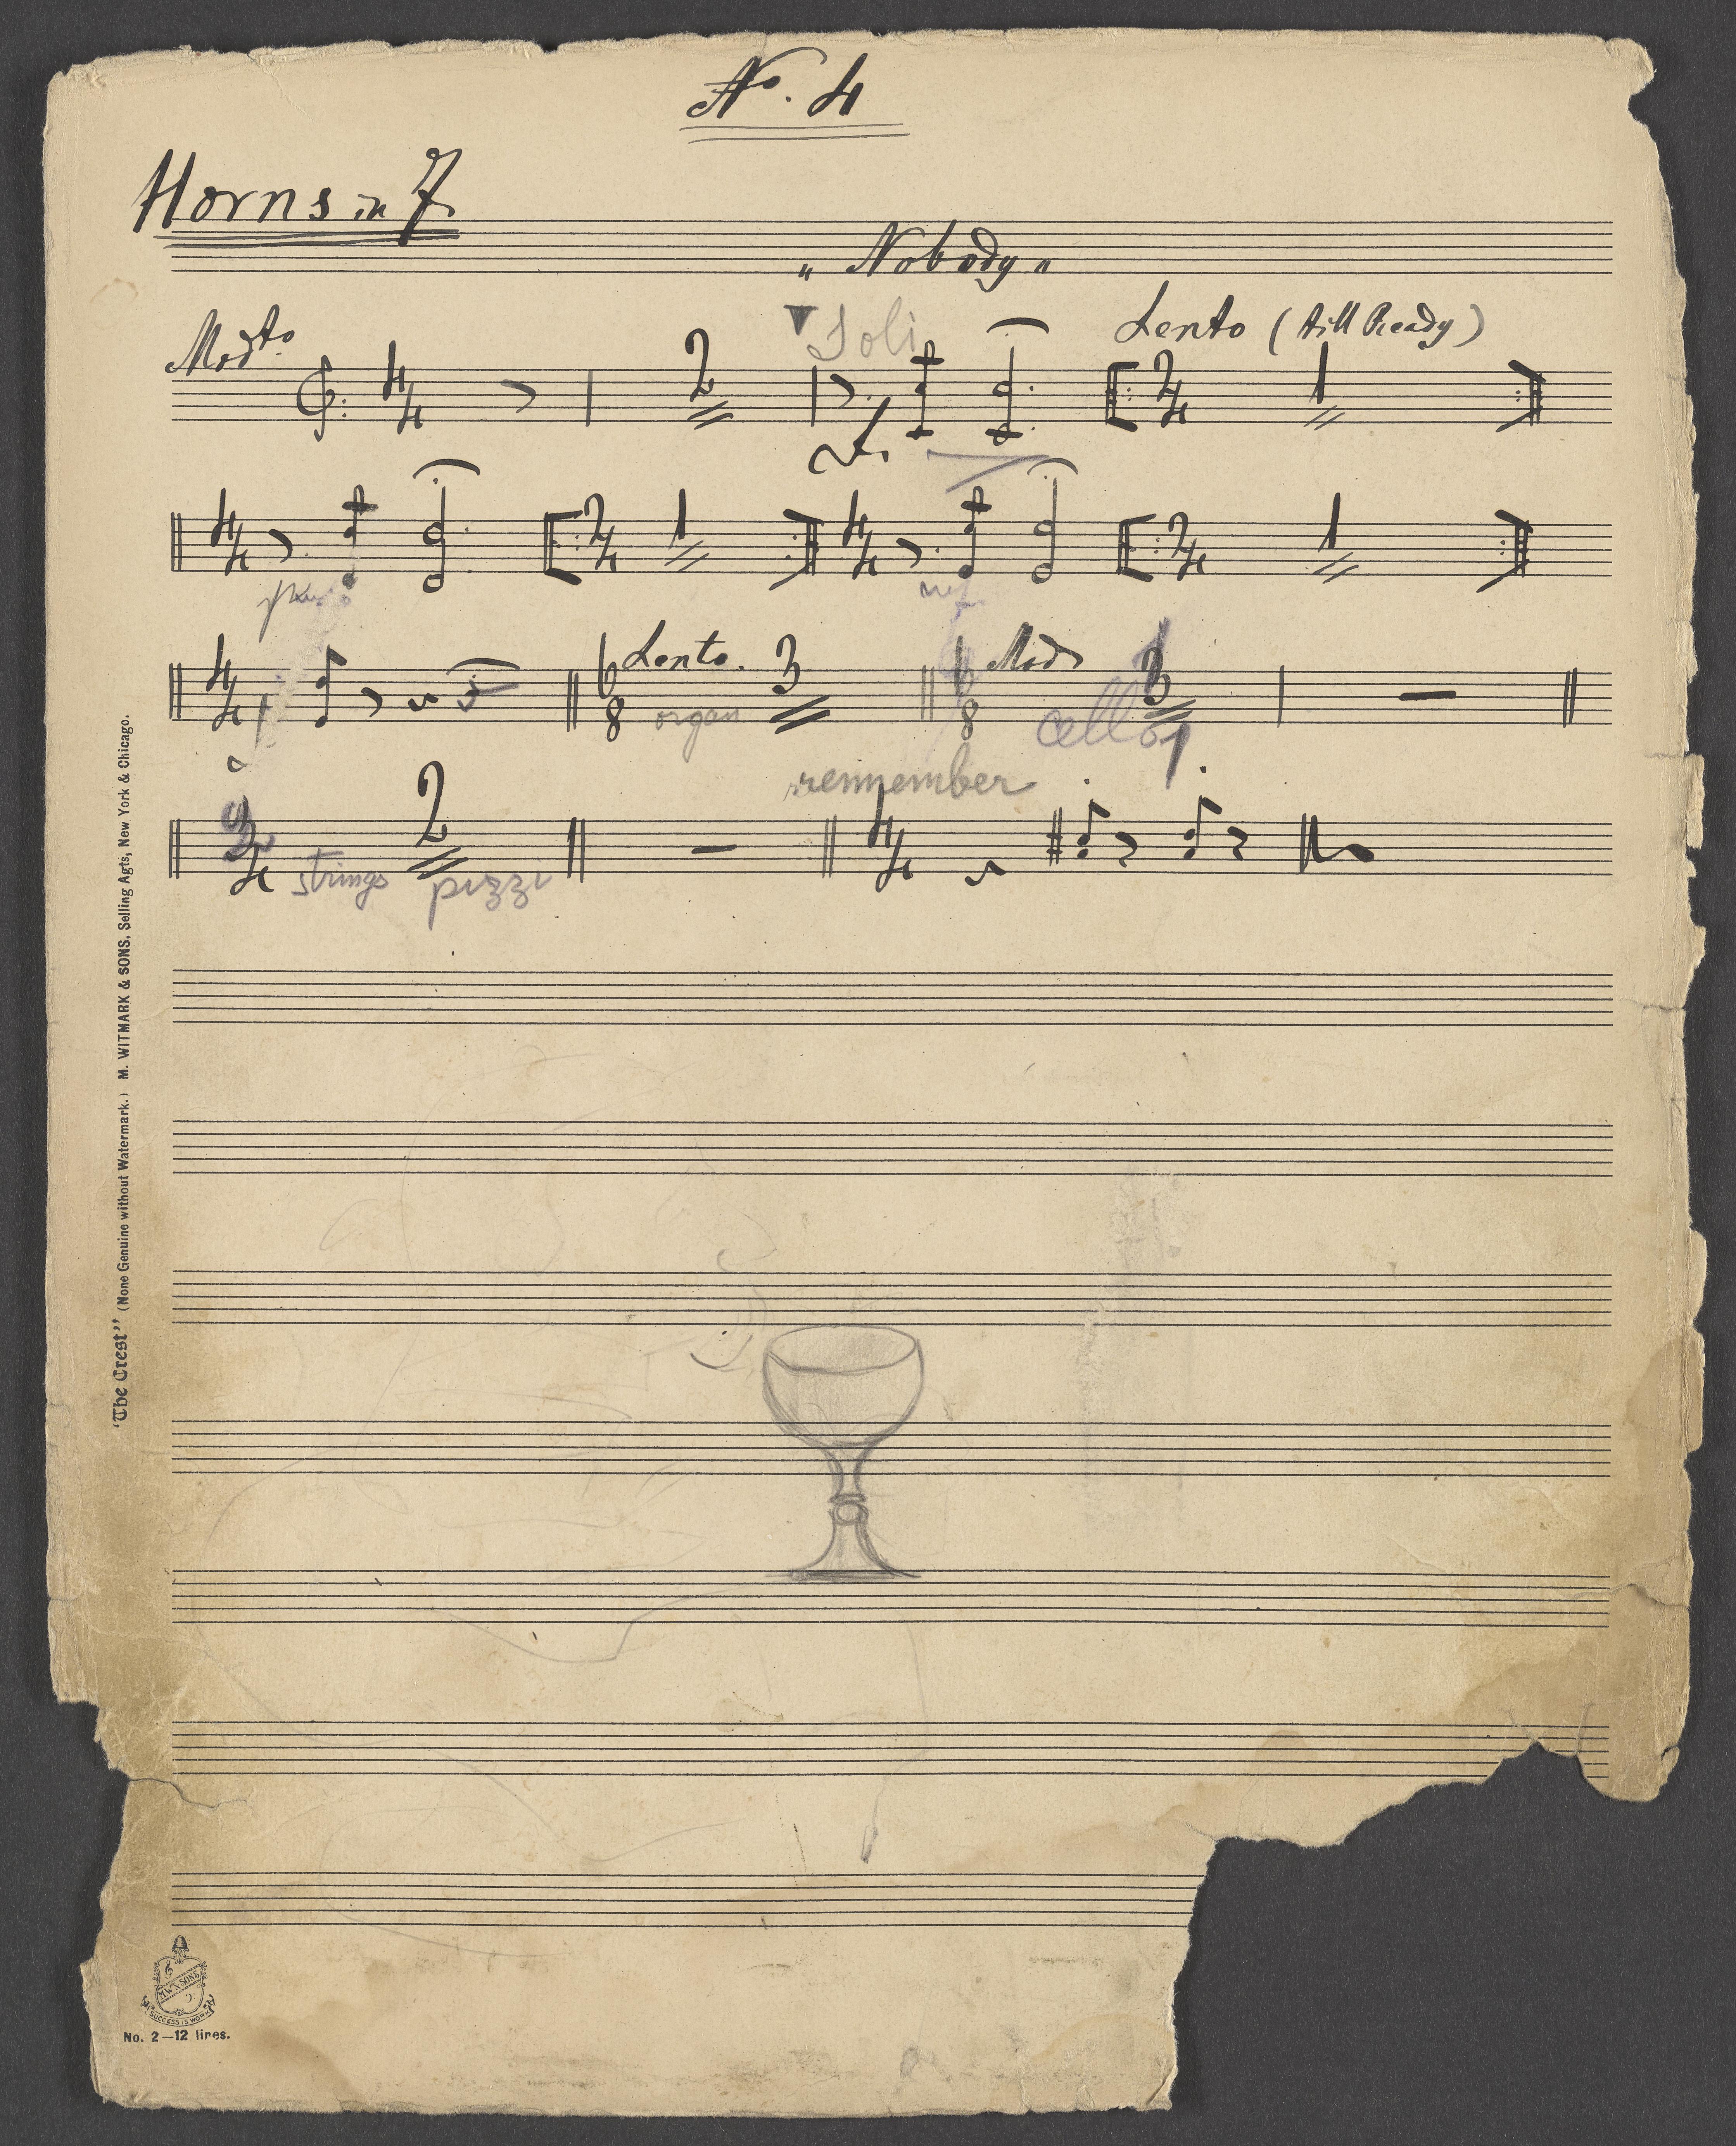 No. 4
Horns in F
„ Nobody "
Modto
Soli
Lento (till Ready)
4/4 2 2/4 1
4/4 2/4 1 4/4 2/4 1
mf
4/4 6/8 Lento. 3 6/8 Modto
organ cello
remember
2 4/4
strings pizzi
"The Crest" (None Genuine without Watermark.) M. WITMARK & SONS, Selling Agts, New York & Chicago.
M.W. & SONS
SUCCESS IS WORK
No. 2—12 lines.